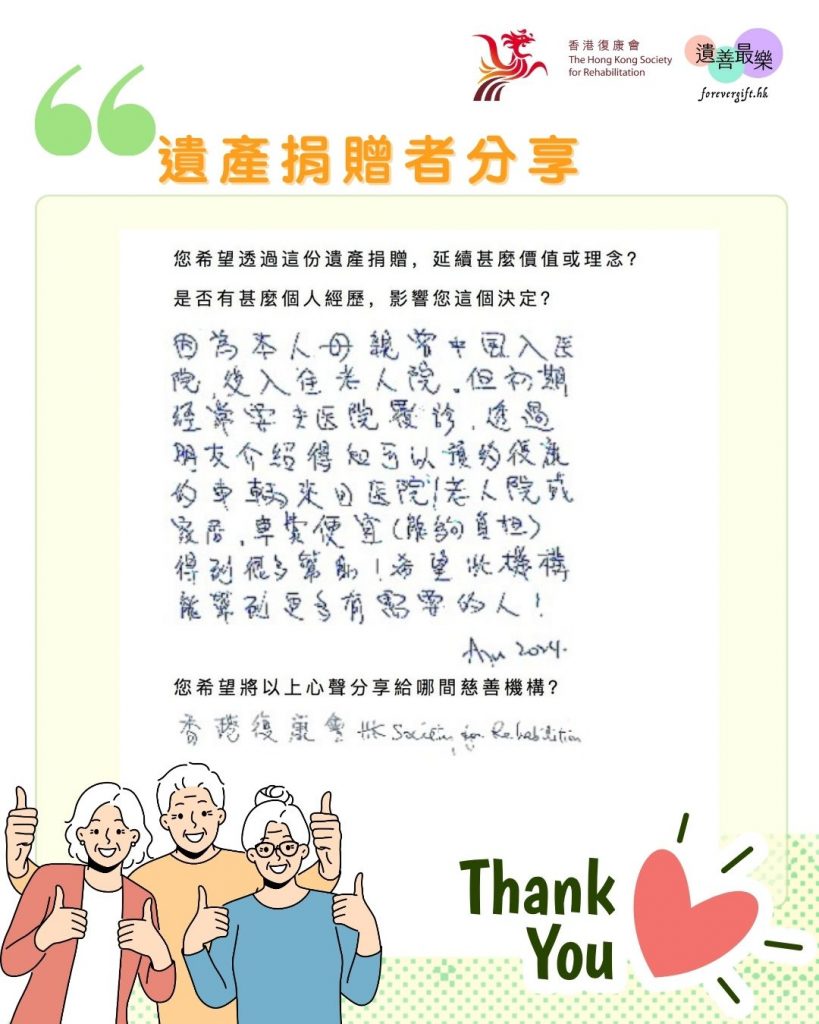 香港復康會
The Hong Kong Society
for Rehabilitation
遺善最樂
forevergift.hk
遺產捐贈者分享
您希望透過這份遺產捐贈，延續甚麼價值或理念？
是否有甚麼個人經歷，影響您這個決定？
因為本人母親曾中風入医
院，後入住老人院。但初期
經常要去医院覆诊，透過
朋友介紹得知可以預約復康
的車輛來回医院/老人院或
家居，車費便宜(能夠負担)
得到很多幫助！希望此機構
能幫到更多有需要的人！
2024.
您希望將以上心聲分享給哪間慈善機構？
香港復康會 HK Society for Rehabilitation
Thank
You